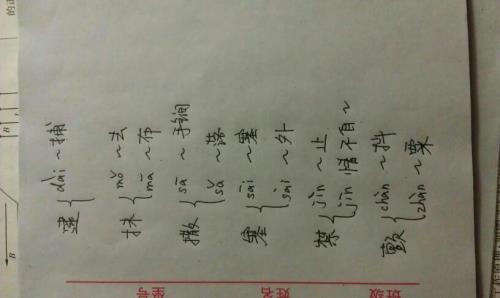 逮 { dài ~捕
抹 { mǒ ~去
mā ~布
撒 { sā ~手锏
sǎ ~落
塞 { sāi ~塞
sài ~外
禁 { jìn ~止
jīn 情不自~
颤 { chàn ~抖
zhàn ~栗
坐号
姓名
班级
B
B